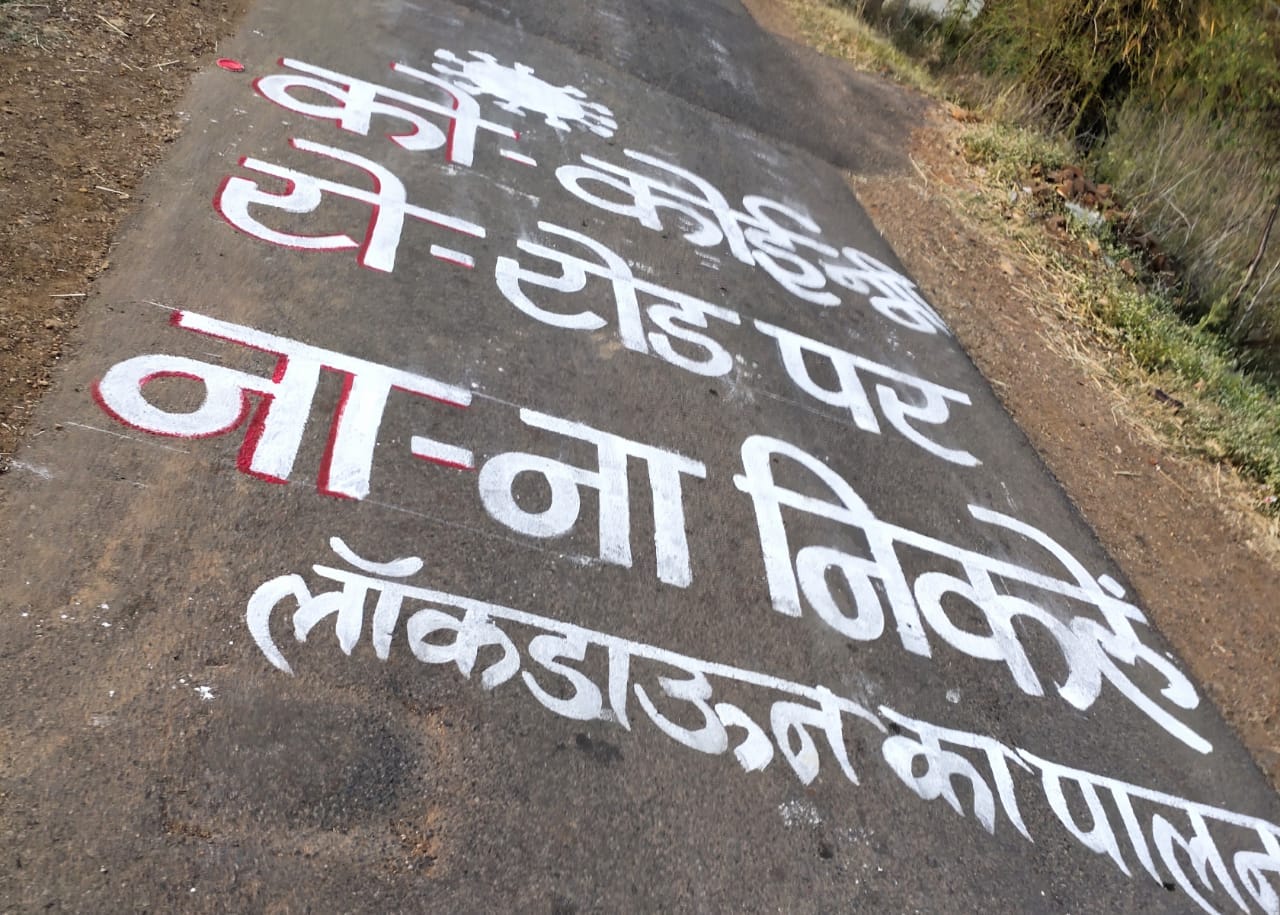 को- कोई भी
रो- रोड पर
ना- ना निकहें
लॉकडाऊन का पालन